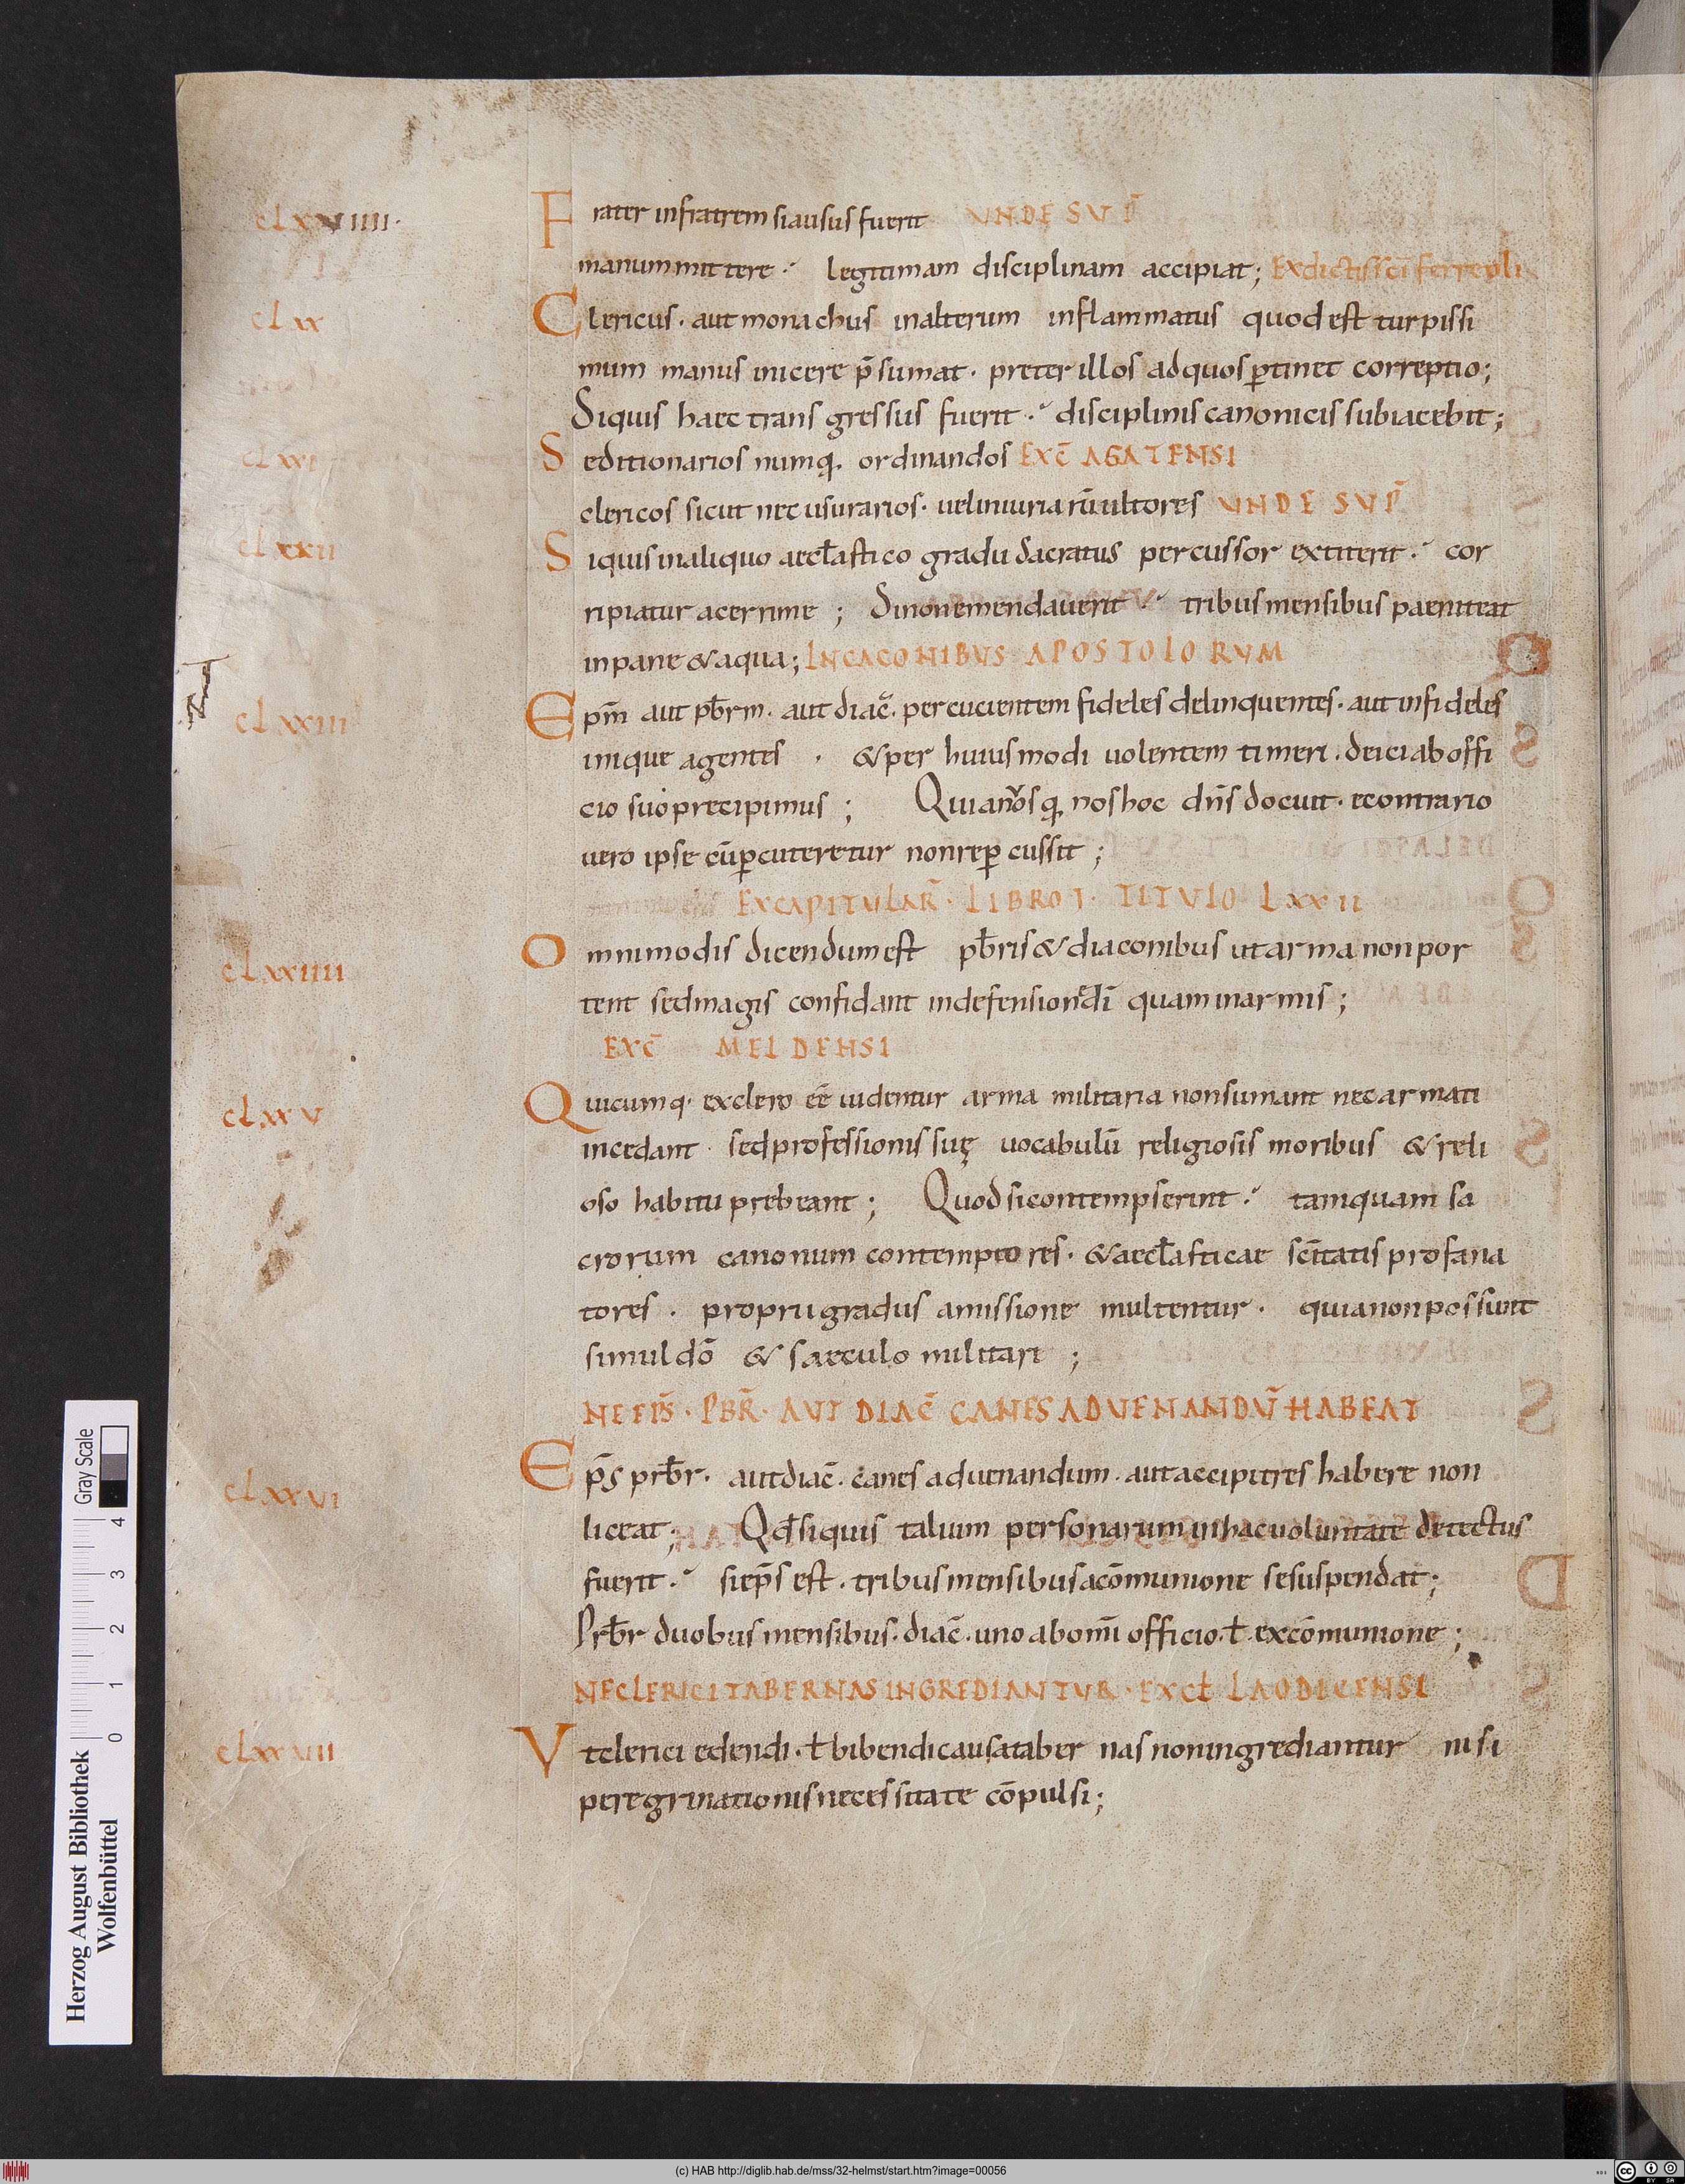 clxviiii·
Frater infratrem siausus fuerit UNDE SUP̄
manummittere·' legitimam disciplinam accipiat; Exdictis sc̄i ferreoli
clxx
Clericus· aut monachus inalterum inflammatus quod est turpissi
mum manus inicere p̄sumat· preter illos adquos ꝑtinet correptio;
Siquis haec transgressus fuerit·' disciplinis canonicis subiacebit;
clxxi
Seditionarios numq· ordinandos EXC̄ AGATENSI
clericos sicut nec usurarios· uel iniuriarū ultores UNDE SUP̄
clxxii
Siquis inaliquo aeccƚastico gradu sacratus percussor extiterit·' cor
ripiatur acerrime ; Sinonemendauerit·' tribus mensibus paeniteat
inpane & aqua; INCACONIBUS APOSTOLORUM
clxxiii
Ep̄m aut pƀrm· aut diac̄· percucientem fideles delinquentes· aut infideles
inique agentes · & per huiusmodi uolentem timeri· deici ab offi
cio suo precipimus ; Quia nosq nos hoc dn̄s docuit· econtrario
uero ipse cūꝑcuteretur nonreꝑcussit ;
EXCAPITULAR̄· LIBRO I· TITULO LXXII
clxxiiii
Omnimodis dicendum est pƀris & diaconibus ut arma non por
tent sed magis confidant indefensione dī quam inarmis ;
EXC̄ MELDENSI
clxxv
Quicumq· exclero eē uidentur arma militaria nonsumant nec armati
incedant· sed professionis suę uocabulū religiosis moribus & reli
oso habitu prebeant ; Quod sicontempserint·' tamquam sa
crorum canonum contemptores· & aeccƚasticae sc̄itatis profana
tores · proprii gradus amissione multentur· quia non possunt
simul dō & saeculo militari ;
NE EP̄S· PBR̄· AUT DIAC̄ CANES ADUENANDŪ HABEAT
clxxvi
Ep̄s prƀr· aut diac̄· canes aduenandum· aut accipitres habere non
liceat; Qđsiquis talium personarum inhac uoluntate detectus
fuerit·' siep̄s est· tribus mensibus acōmunione sesuspendat;
Prƀr duobus mensibus· diac̄· uno abomī officio· ƚ excōmunione ;
NECLERICI TABERNAS INGREDIANTUR· EXCƚ LAODICENSI
clxxvii
Vt clerici edendi· ƚ bibendi causa tabernas noningrediantur nisi
peregrinationis necessitate cōpulsi;
Herzog August Bibliothek
Wolfenbüttel
0 1 2 3 4
Gray Scale
(c) HAB http://diglib.hab.de/mss/32-helmst/start.htm?image=00056